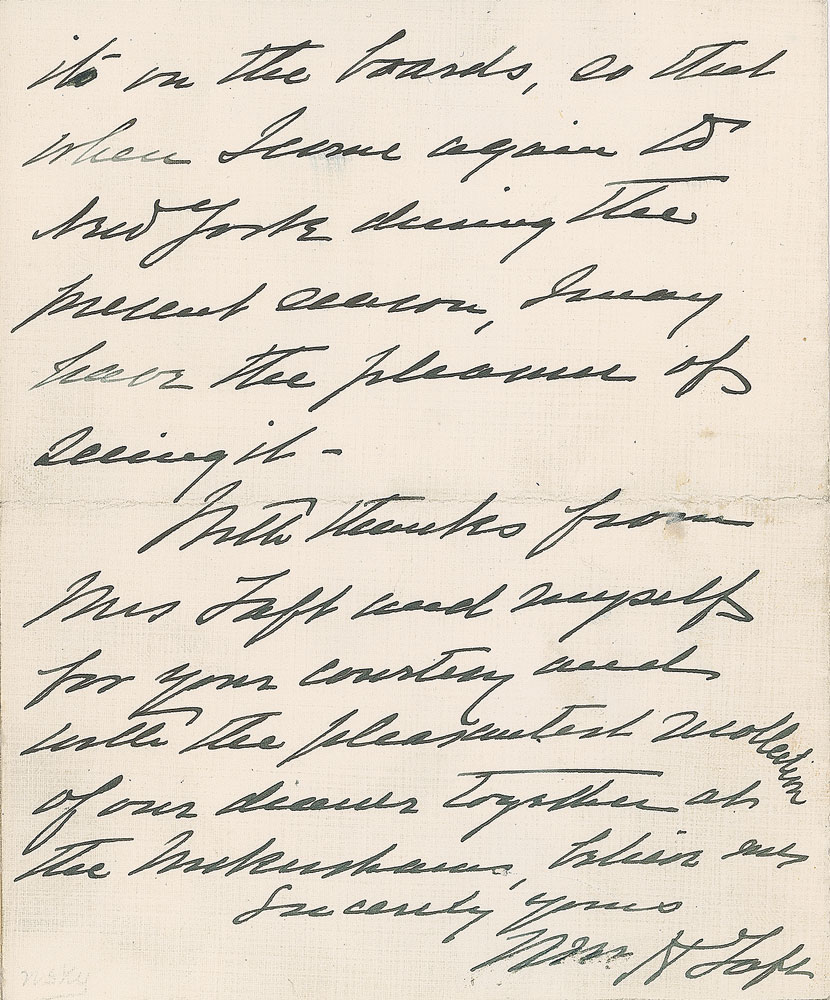 its on the boards, so that
when I come again to
New York during the
present season, I may
have the pleasure of
seeing it -
With thanks from
Mrs Taft and myself
for your courtesy and
with the pleasantest recollection
of our dinner together at
the, believe me
Sincerely yours
Wm H Taft